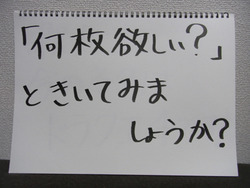 「何枚欲しい?」
ときいてみま
しょうか?